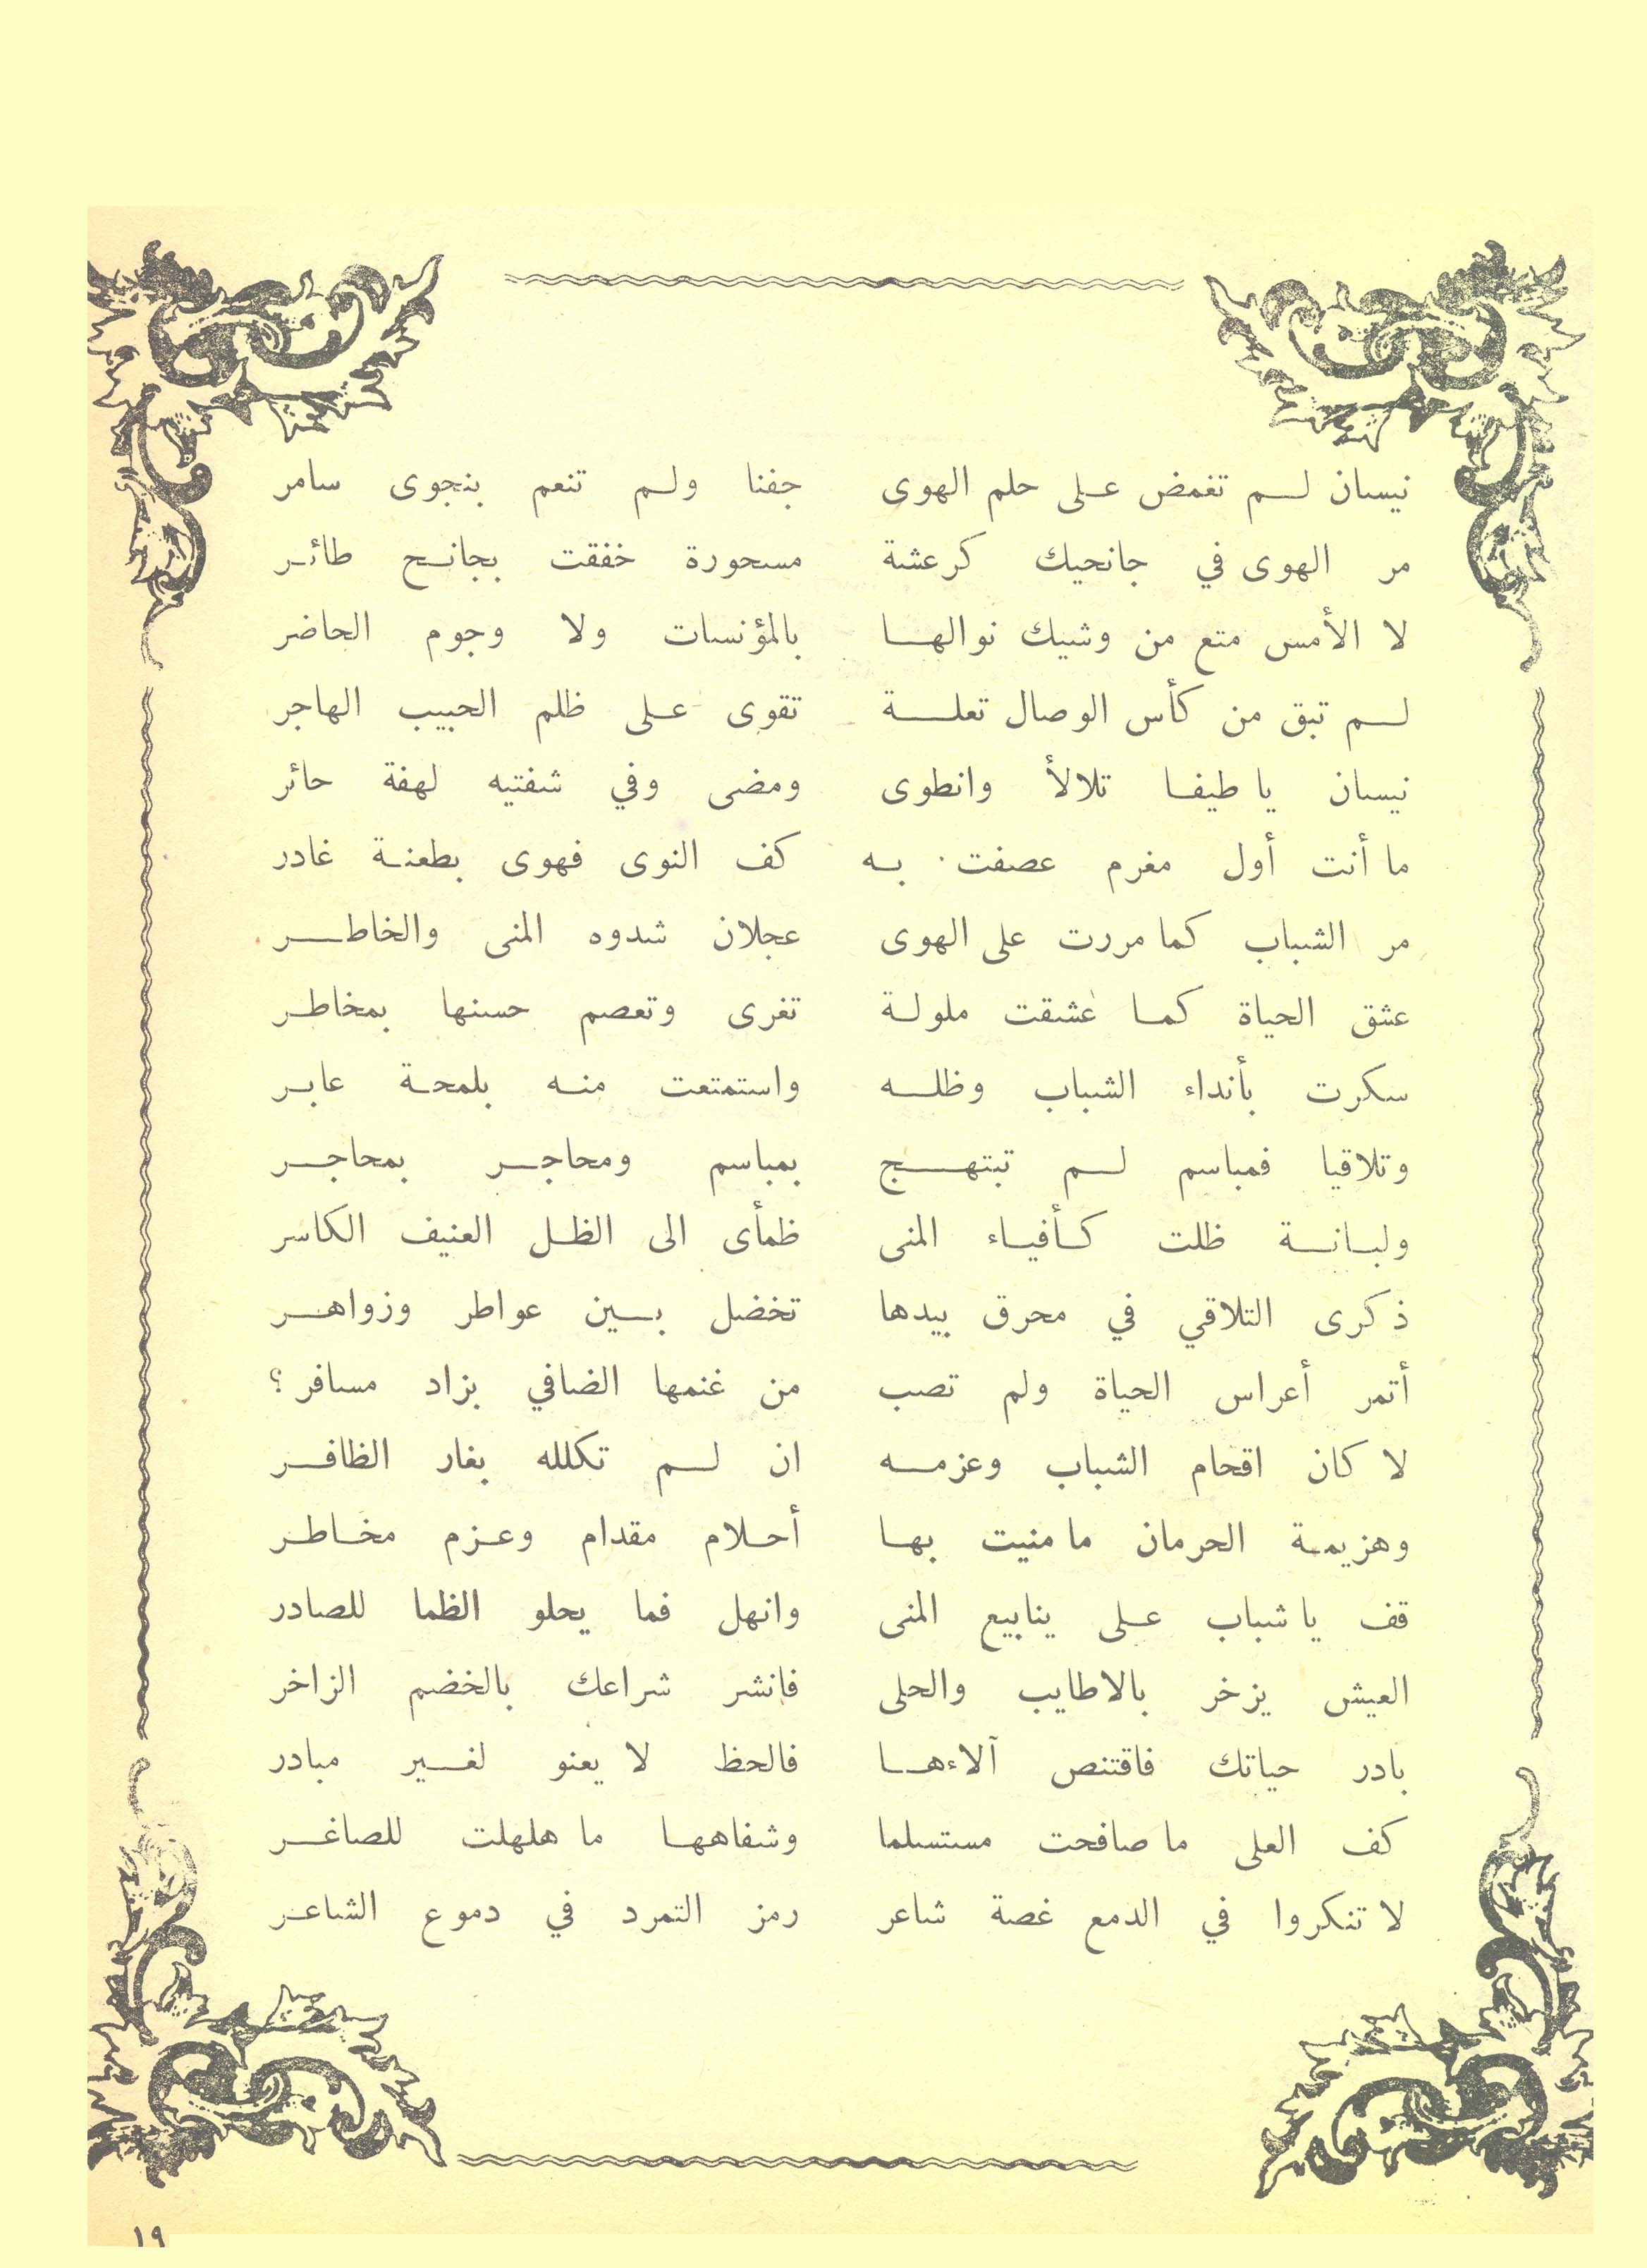 نيسان لم تغمض على حلم الهوى جفنا ولم تنعم بنجوى سامر
مر الهوى في جانحيك كرعشة مسحورة خفقت بجانح طائر
لا الأمس متع من وشيك نوالها بالمؤنسات ولا وجوم الحاضر
لم تبق من كأس الوصال تعلة تقوى على ظلم الحبيب الهاجر
نيسان يا طيفا تلالأ وانطوى ومضى وفي شفتيه لهفة حائر
ما أنت أول مغرم عصفت به كف النوى فهوى بطعنة غادر
مر الشباب كما مررت على الهوى عجلان شدوه المنى والخاطر
عشق الحياة كما عشقت ملولة تغرى وتعصم حسنها بمخاطر
سكرت بأنداء الشباب وظله واستمتعت منه بلمحة عابر
وتلاقيا فمباسم لم تبتهج بمباسم ومحاجر بمحاجر
ولبانة ظلت كأفياء المنى ظمأى الى الظل العنيف الكاسر
ذكرى التلاقي في محرق بيدها تخضل بين عواطر وزواهر
أتمر أعراس الحياة ولم تصب من غنمها الضافي بزاد مسافر ؟
لا كان اقحام الشباب وعزمه ان لم تكلله بغار الظافر
وهزيمة الحرمان ما منيت بها أحلام مقدام وعزم مخاطر
قف يا شباب على ينابيع المنى وانهل فما يحلو الظما للصادر
العيش يزخر بالاطايب والحلى فانشر شراعك بالخضم الزاخر
بادر حياتك فاقتنص آلاءها فالحظ لا يعنو لغير مبادر
كف العلى ما صافحت مستسلما وشفاهها ما هلهلت للصاغر
لا تنكروا في الدمع غصة شاعر رمز التمرد في دموع الشاعر
١٩